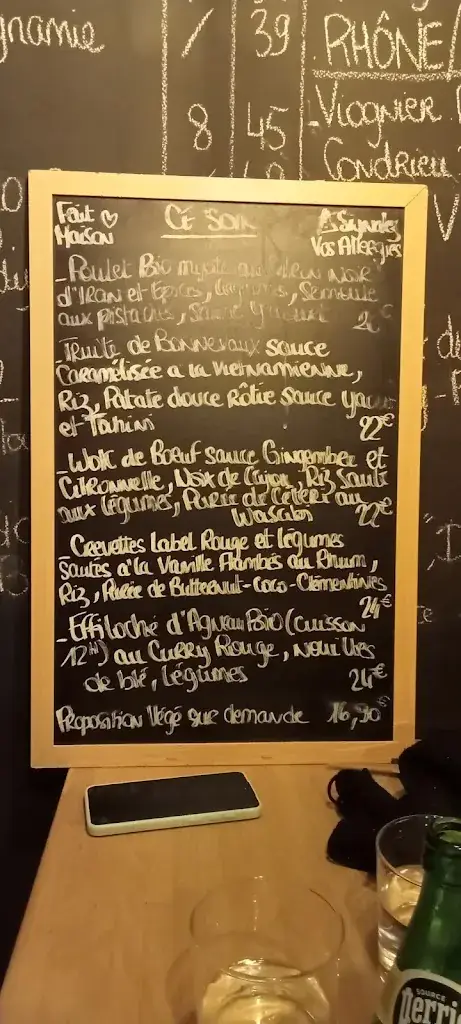 39
RHÔNE
8 45
Viognier
Condrieu
Fait ♡
Maison
CE SOIR
⚠ Signalez
Vos Allergies
- Poulet Bio mijoté au citron noir
d'Iran et Épices, légumes, Semoule
aux pistaches, sauce yaourt
- Truite de Bonnevaux sauce
Caramélisée a la vietnamienne,
Riz, Patate douce Rôtie sauce yaourt
et Tahini 22€
- Wok de Boeuf sauce Gingembre et
Citronnelle, Noix de Cajou, Riz sauté
aux légumes, Purée de Céleri au
Wasabi 22€
- Crevettes Label Rouge et légumes
Sautés a la Vanille Flambés au Rhum,
Riz, Purée de Butternut-Coco-Clémentines
24€
- Effiloché d'Agneau Bio (cuisson
12H) au Curry Rouge, nouilles
de blé, légumes 24€
Proposition Végé sur demande 16,90
SOURCE
Perrie